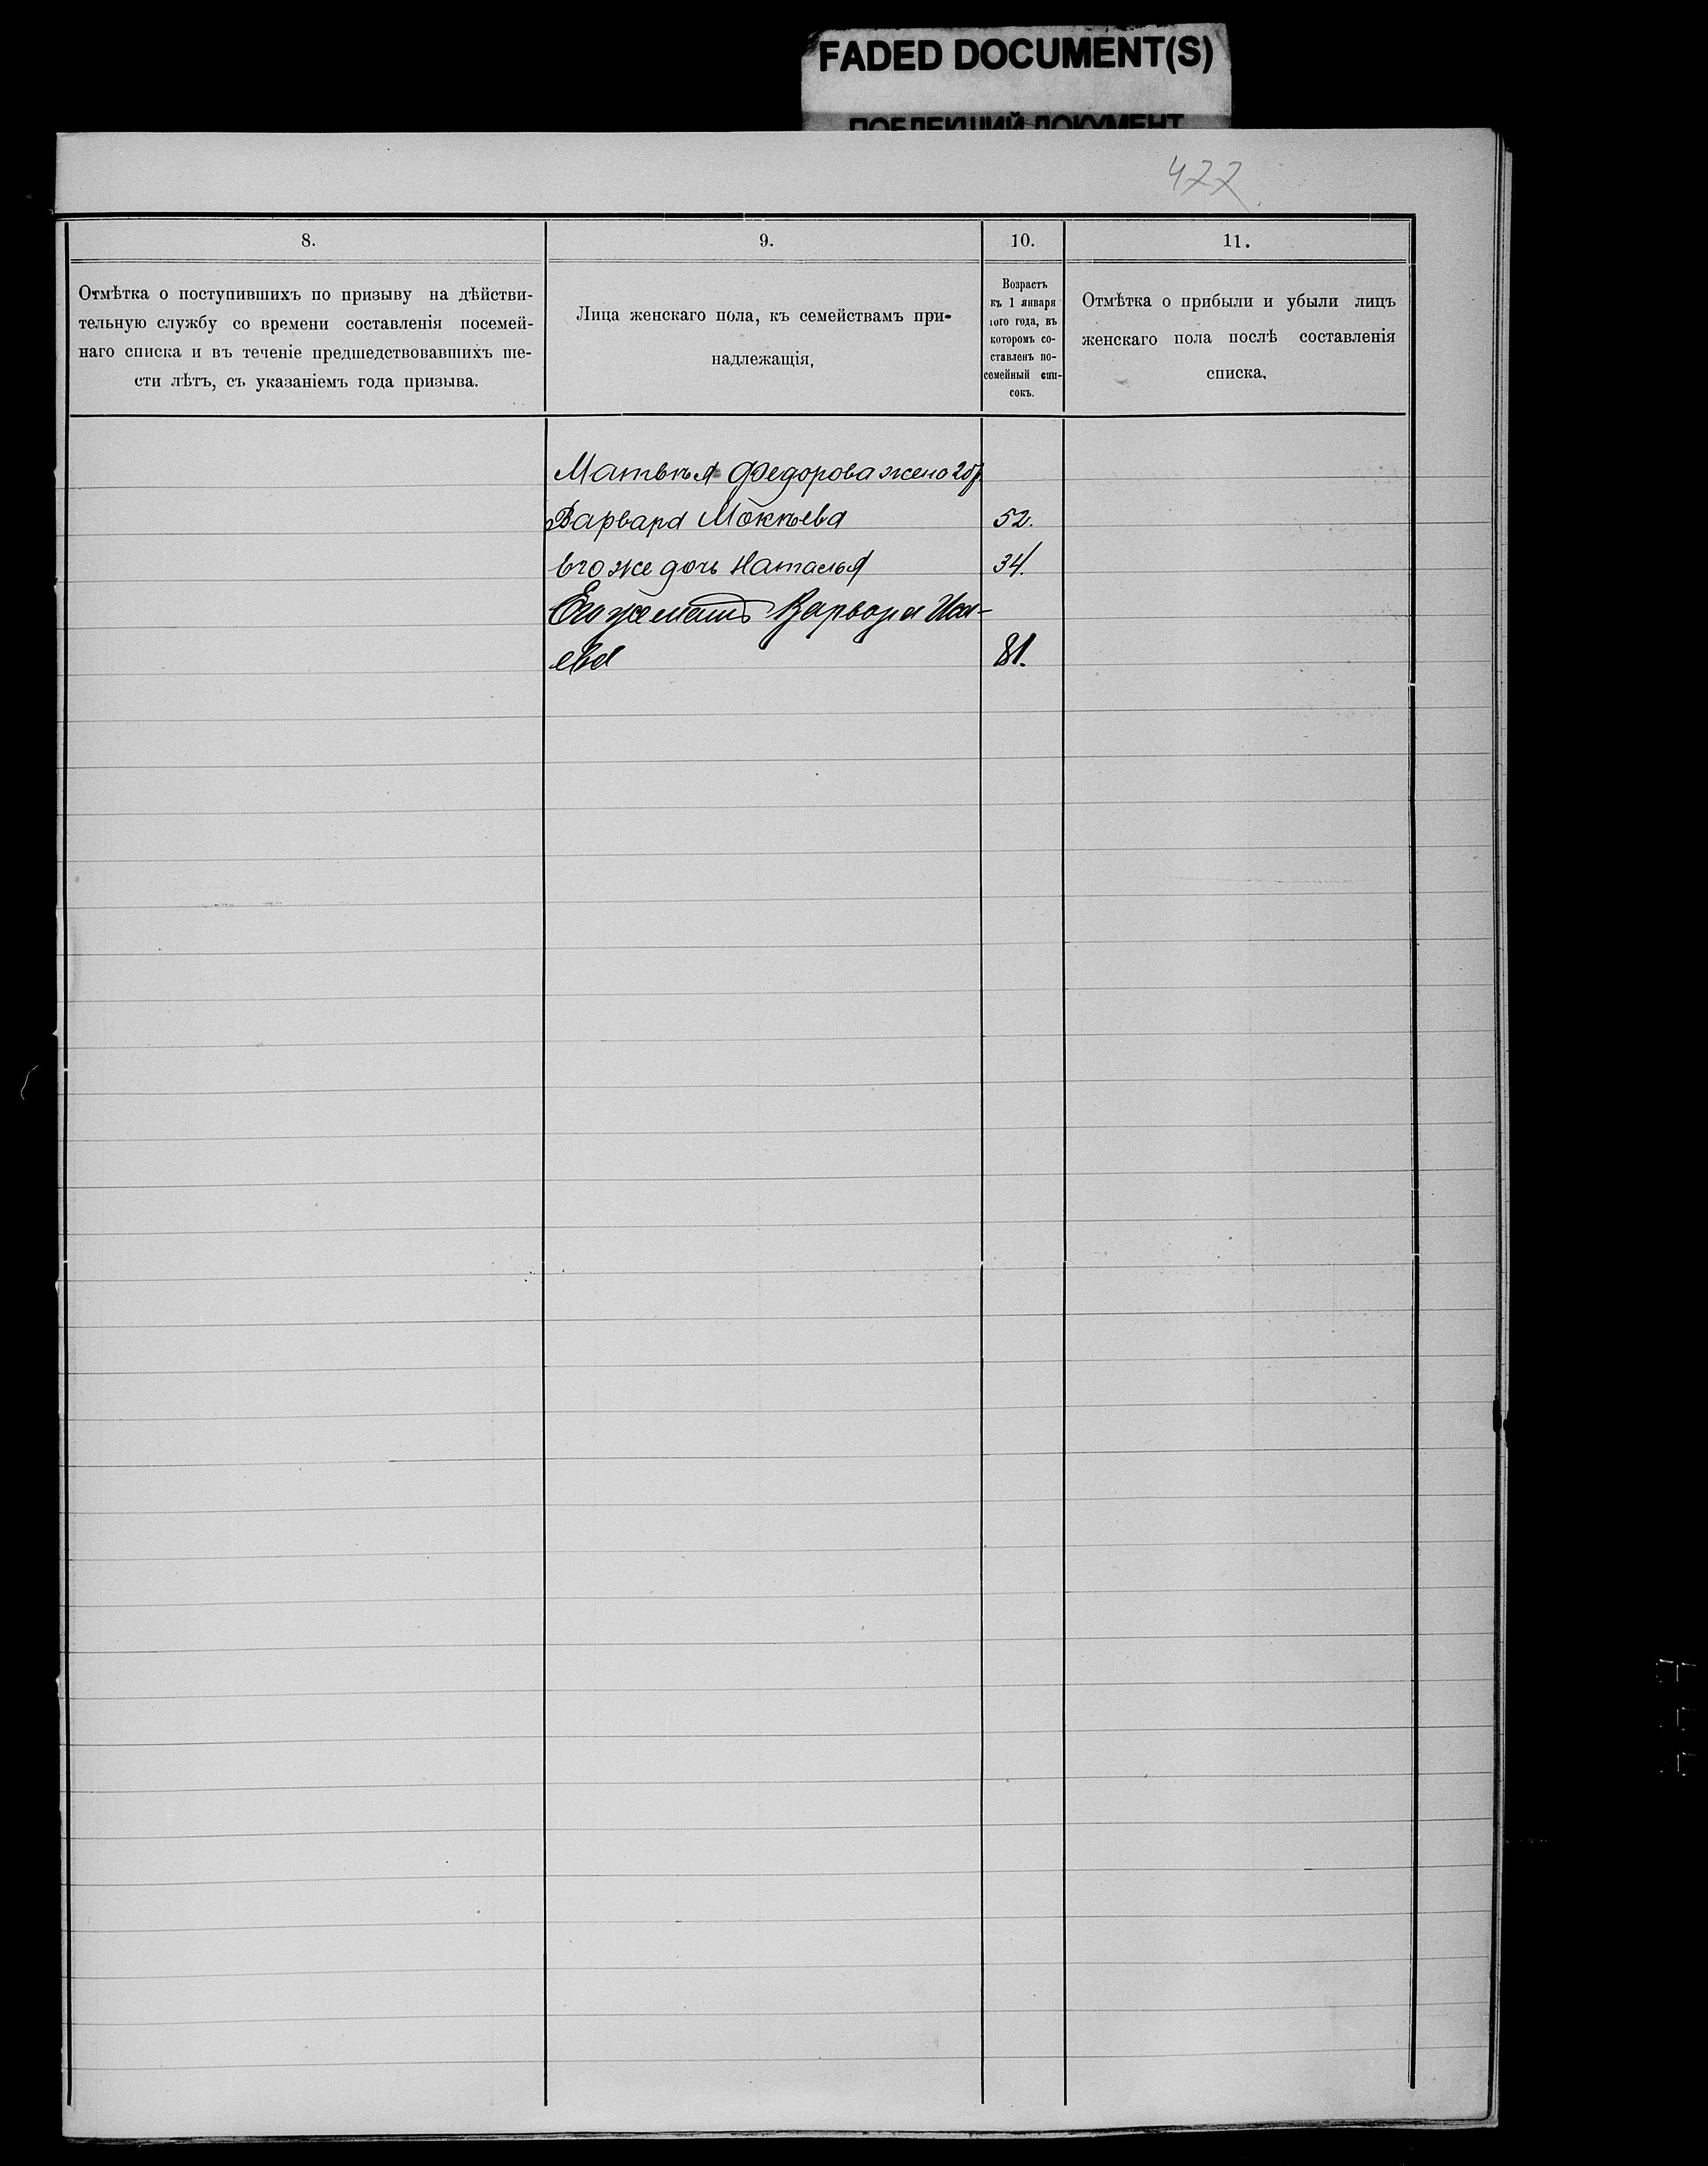 FADED DOCUMENT(S)
ПОБЛЕКШИЙ ДОКУМЕНТ
422
8.
Отмѣтка о поступившихъ по призыву на дѣйстви-
тельную службу со времени составленія посемей-
наго списка и въ теченіе предшедствовавшихъ ше-
сти лѣтъ, съ указаніемъ года призыва.
9.
Лица женскаго пола, къ семействамъ при-
надлежащія,
10.
Возрастъ
къ 1 января
того года, въ
которомъ со-
ставленъ по-
семейный спи-
сокъ.
11.
Отмѣтка о прибыли и убыли лицъ
женскаго пола послѣ составленія
списка,
Матвѣя Федорова жена 2 бр
Варвара Мокѣева 52.
его же дочь Наталья 34.
Его же мать Варвара Иса-
ева 81.